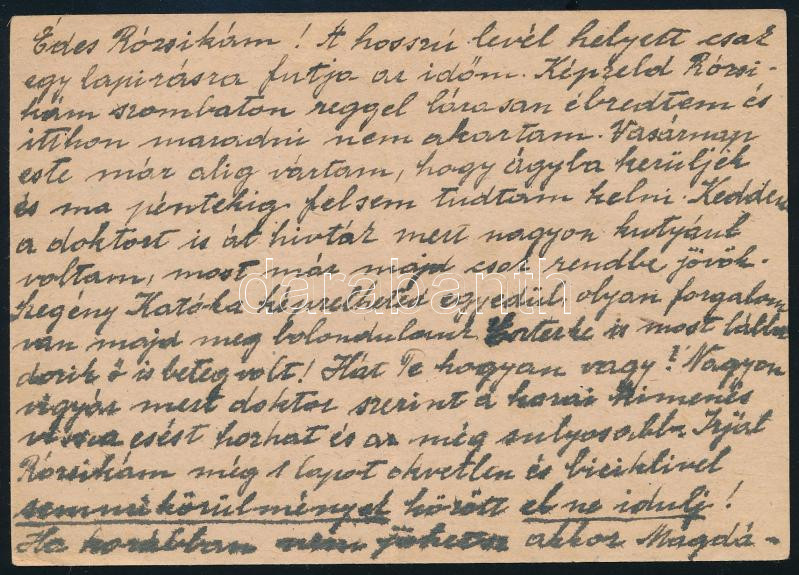 Édes Rózsikám! A hosszú levél helyett csak
egy lapirásra futja az időm. Képzeld Rózsi-
kám szombaton reggel lázasan ébredtem és
itthon maradni nem akartam. Vasárnap
este már alig vártam, hogy ágyba kerüljek
és ma péntekig felsem tudtam kelni. Kedden
a doktort is át hivták mert nagyon kutyául
voltam, most már majd csak rendbe jövök.
Szegény Katóka képzelheted egyedül, olyan forgalom
van majd meg bolondulunk. is most lábba
dozik ő is beteg volt! Hát Te hogyan vagy? Nagyon
vigyáz mert doktor szerint a korai kimenés
vissza esést hozhat és az még sulyosabb. Irjál
Rózsikám még 1 lapot okvetlen és biciklivel
semmi körülmények között el ne indulj!
Ha korábban nem akkor Magdá-
darabanth